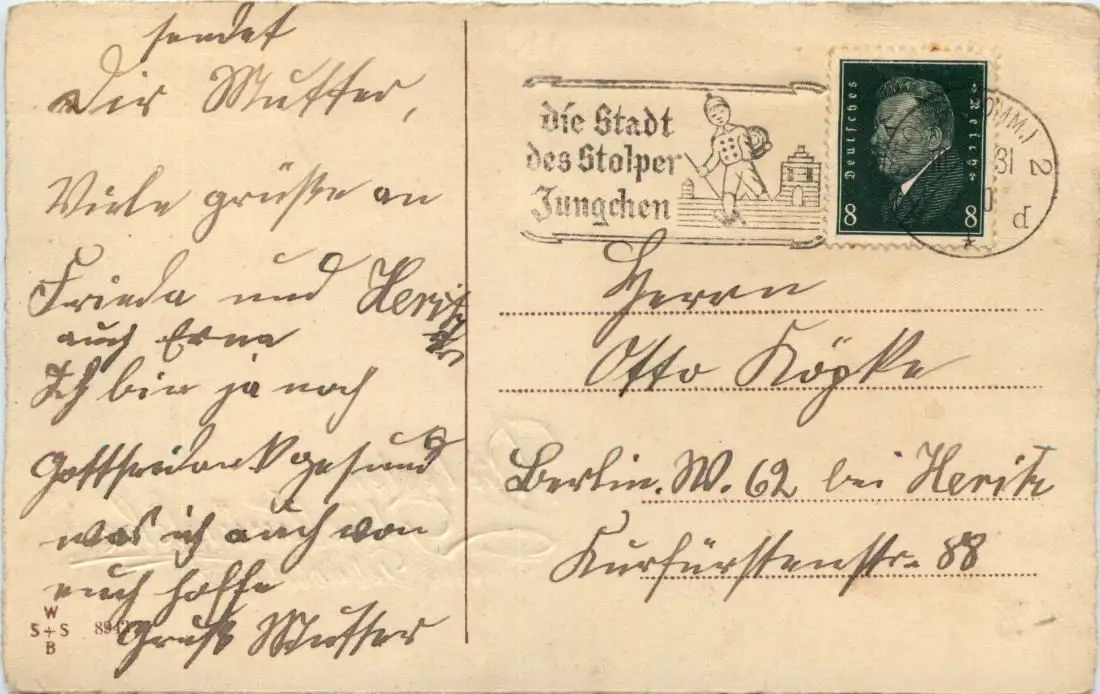 sendet
Dir Mutter,
Viele grüße an
Frieda und Heritz
auch Erna
Ich bin ja noch
Gottseidank gesund
was ich auch von
euch hoffe
Gruß Mutter
W
S+S
B
Die Stadt
des Stolper
Jungchen
Deutsches
Reich
8
8
OMM.) 2
31
d
Herrn
Otto Köpke
Berlin. W. 62 bei Heritz
Kurfürstenstr. 88